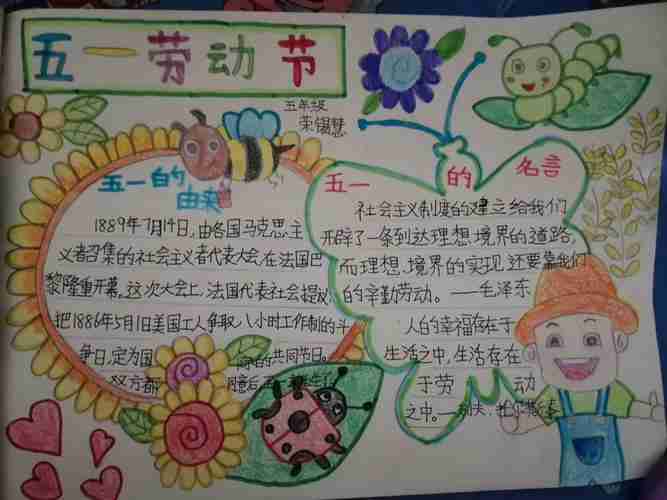 五一劳动节
五年级
荣锡慧
五一的
由来
1889年7月14日,由各国马克思主
义者召集的社会主义者代表大会,在法国巴
黎隆重开幕。这次大会上,法国代表社会提议:
把1886年5月1日美国工人争取八小时工作制的斗
争日,定为国 的共同节日。
双方都 同意后
五一的名言
社会主义制度的建立给我们
开辟了一条到达理想境界的道路,
而理想境界的实现还要靠我们
的辛勤劳动。——毛泽东
人的幸福存在于
生活之中,生活存在
于劳动
之中。——列夫,托尔斯泰